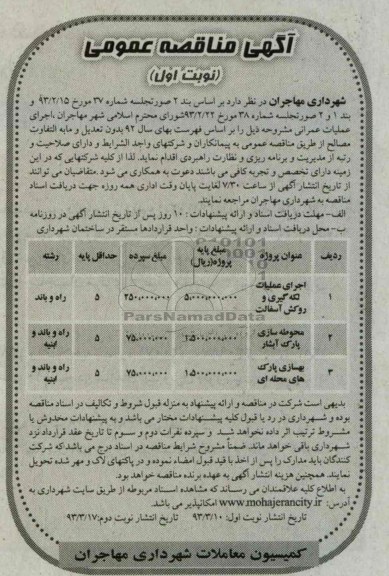 آگهی مناقصه عمومی
(نوبت اول)
شهرداری مهاجران در نظر دارد بر اساس بند ۲ صورتجلسه شماره ۳۷ مورخ ۹۳/۲/۱۵ و
بند ۱ و ۲ صورتجلسه شماره ۳۸ مورخ ۹۳/۲/۲۲شورای محترم اسلامی شهر مهاجران ،اجرای
عملیات عمرانی مشروحه ذیل را بر اساس فهرست بهای سال ۹۲ بدون تعدیل و مابه التفاوت
مصالح از طریق مناقصه عمومی به پیمانکاران و شرکتهای واجد الشرایط و دارای صلاحیت و
رتبه از مدیریت و برنامه ریزی و نظارت راهبردی اقدام نماید. لذا از کلیه شرکتهایی که در این
زمینه دارای تخصص و تجربه کافی می باشند دعوت به همکاری می شود .متقاضیان می توانند
از تاریخ انتشار آگهی از ساعت ۷/۳۰ لغایت پایان وقت اداری همه روزه جهت دریافت اسناد
مناقصه به شهرداری مهاجران مراجعه نمایند.
الف- مهلت دریافت اسناد و ارائه پیشنهادات : ۱۰ روز پس از تاریخ انتشار آگهی در روزنامه
ب- محل دریافت اسناد و ارائه پیشنهادات : واحد قراردادها مستقر در ساختمان شهرداری
ردیف عنوان پروژه مبلغ پایه پروژه(ریال) مبلغ سپرده حداقل پایه رشته
۱ اجرای عملیات لکه گیری و روکش آسفالت ۵،۰۰۰،۰۰۰،۰۰۰ ۲۵۰،۰۰۰،۰۰۰ ۵ راه و باند
۲ محوطه سازی پارک آبشار ۱،۵۰۰،۰۰۰،۰۰۰ ۷۵،۰۰۰،۰۰۰ ۵ راه و باند و ابنیه
۳ بهسازی پارک های محله ای ۱،۵۰۰،۰۰۰،۰۰۰ ۷۵،۰۰۰،۰۰۰ ۵ راه و باند و ابنیه
ParsNamadData
بدیهی است شرکت در مناقصه و ارائه پیشنهاد به منزله قبول شروط و تکالیف در اسناد مناقصه
بوده و شهرداری در رد یا قبول کلیه پیشنهادات مختار می باشد و به پیشنهادات مخدوش یا
مشروط ترتیب اثر داده نخواهد شد. و سپرده نفرات دوم و سوم تا تاریخ عقد قرارداد نزد
شهرداری باقی خواهد ماند. ضمناً مشروح شرایط مناقصه در اسناد درج می باشد که شرکت
کنندگان باید مدارک را پس از اخذ با قید قبول امضاء نموده و در پاکتهای لاک و مهر شده تحویل
نمایند. همچنین هزینه انتشار آگهی به عهده برنده مناقصه خواهد بود.
به اطلاع کلیه علاقمندان می رساند که مشاهده اسناد مربوطه از طریق سایت شهرداری به
آدرس: www.mohajerancity.ir امکانپذیر می باشد.
تاریخ انتشار نوبت اول: ۹۳/۳/۱۰ تاریخ انتشار نوبت دوم:۹۳/۳/۱۷
کمیسیون معاملات شهرداری مهاجران